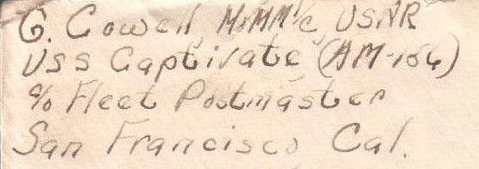 G. Cowell, MoMM1/c, USNR
USS Captivate (AM-156)
c/o Fleet Postmaster
San Francisco, Cal.